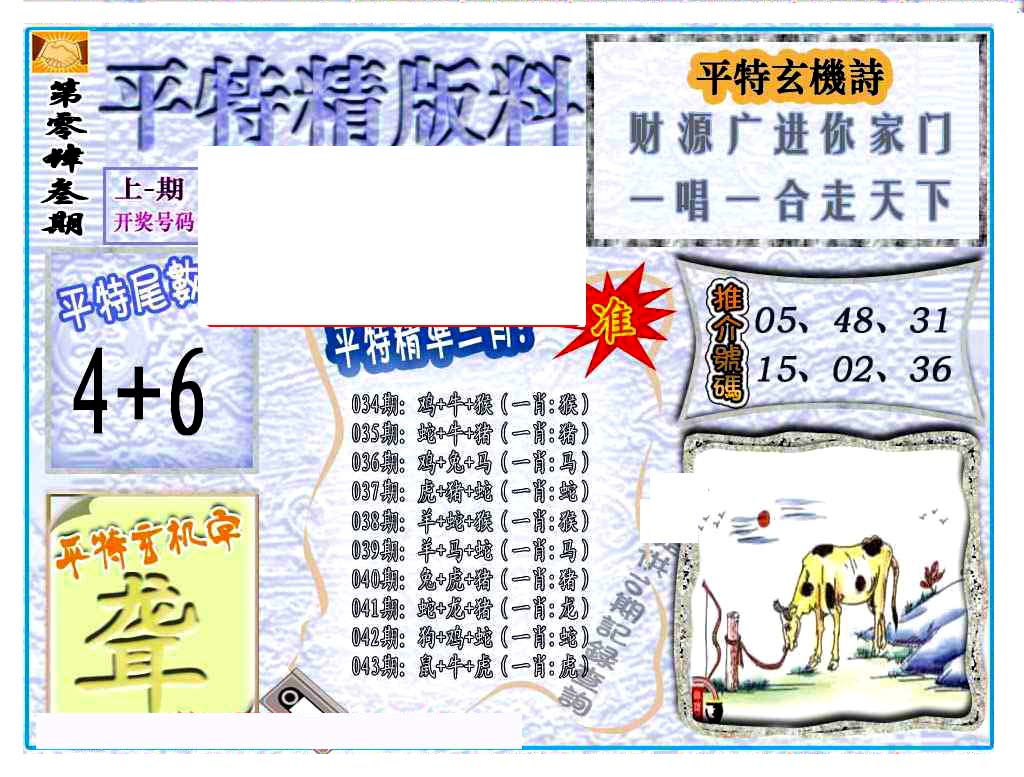 第零肆叁期
平特精版料
上-期
开奖号码
平特玄機詩
财源广进你家门
一唱一合走天下
平特尾數
4+6
平特精准三肖:
准
推介號碼
05、48、31
15、02、36
034期: 鸡+牛+猴 (一肖:猴)
035期: 蛇+牛+猪 (一肖:猪)
036期: 鸡+兔+马 (一肖:马)
037期: 虎+猪+蛇 (一肖:蛇)
038期: 羊+蛇+猴 (一肖:猴)
039期: 羊+马+蛇 (一肖:马)
040期: 兔+虎+猪 (一肖:猪)
041期: 蛇+龙+猪 (一肖:龙)
042期: 狗+鸡+蛇 (一肖:蛇)
043期: 鼠+牛+虎 (一肖:虎)
期記錄查詢
平特玄机字
聋